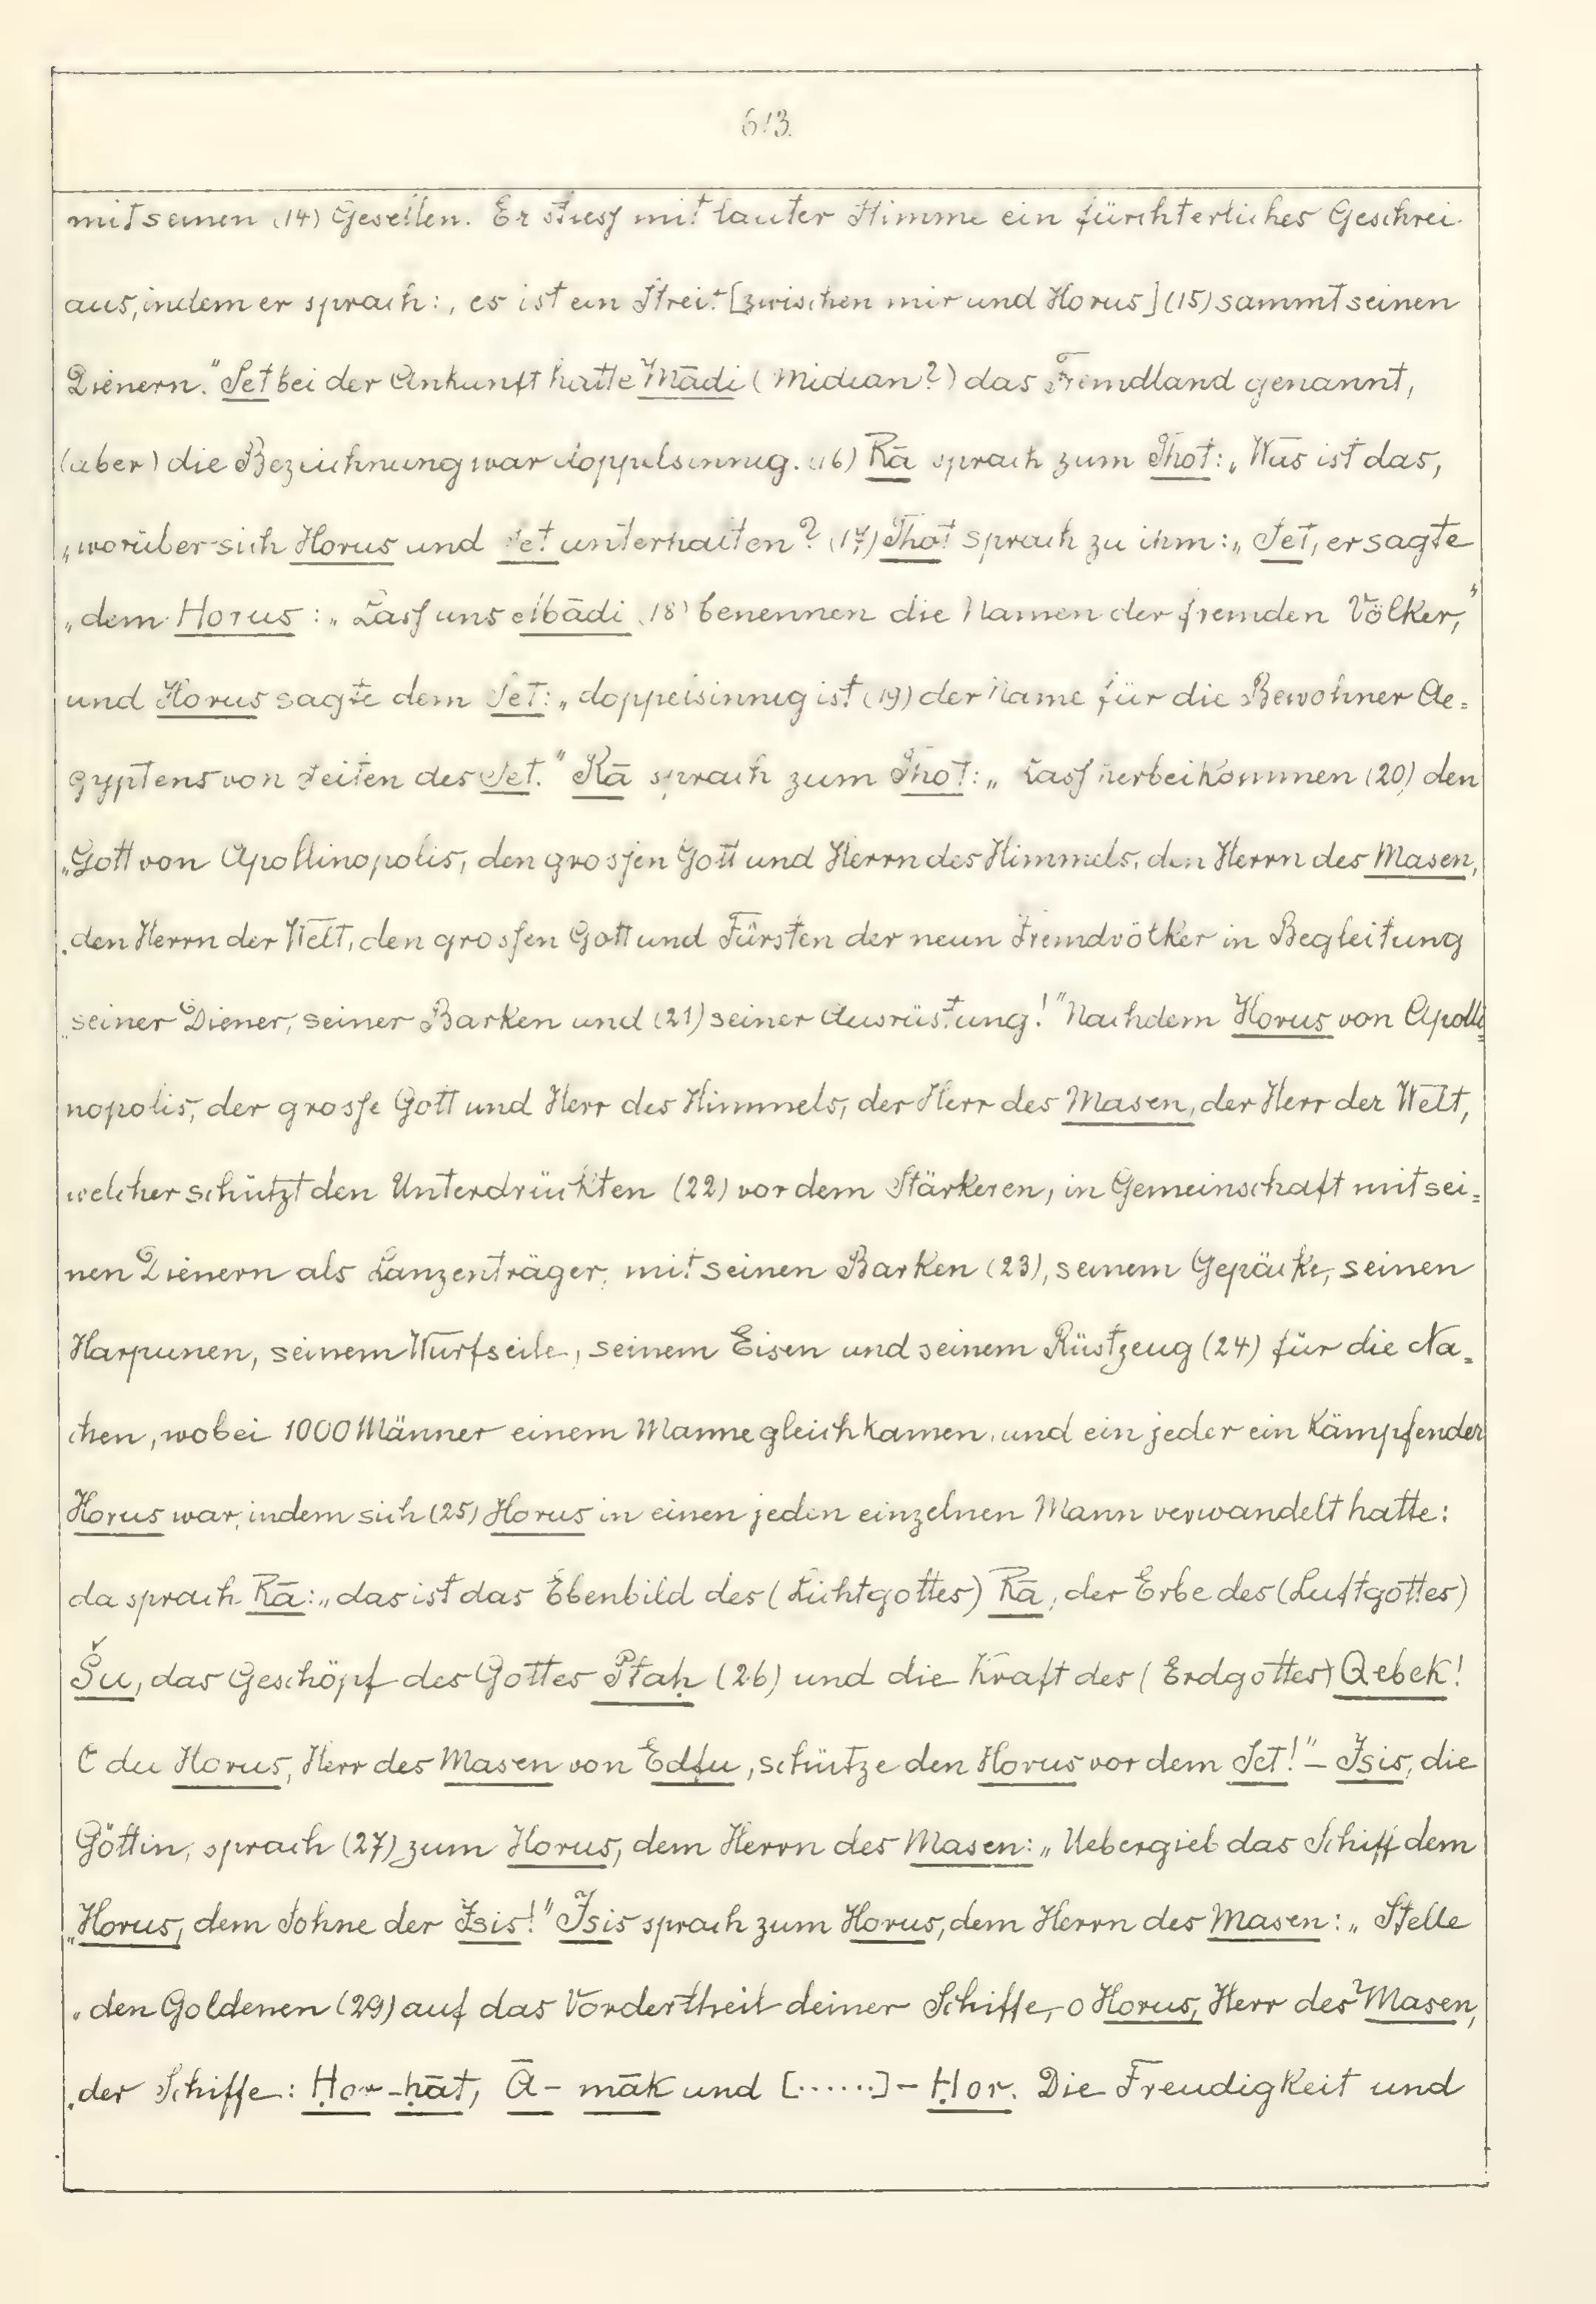 613.
mit seinen (14) Gesellen. Er stiess mit lauter Stimme ein fürchterliches Geschrei
aus, indem er sprach: „es ist ein Streit [zwischen mir und Horus] (15) sammt seinen
Dienern." Set bei der Ankunft hatte Mādi (Midian?) das Fremdland genannt,
(aber) die Bezeichnung war doppelsinnig. (16) Rā sprach zum Thot: „Was ist das,
„worüber sich Horus und Set unterhalten? (17) Thot sprach zu ihm: „Set, er sagte
„dem Horus: „Lass uns (18) benennen die Namen der fremden Völker,"
und Horus sagte dem Set: „doppelsinnig ist (19) der Name für die Bewohner Ae=
gyptens von Seiten des Set." Rā sprach zum Thot: „Lass herbeikommen (20) den
„Gott von Apollinopolis, den grossen Gott und Herrn des Himmels, den Herrn des Masen,
„den Herrn der Welt, den grossen Gott und Fürsten der neun Fremdvölker in Begleitung
„seiner Diener, seiner Barken und (21) seiner Ausrüstung!" Nachdem Horus von Apolli=
nopolis, der grosse Gott und Herr des Himmels, der Herr des Masen, der Herr der Welt,
welcher schützt den Unterdrückten (22) vor dem Stärkeren, in Gemeinschaft mit sei=
nen Dienern als Lanzenträger, mit seinen Barken (23), seinem Gepäcke, seinen
Harpunen, seinem Wurfseile, seinem Eisen und seinem Rüstzeug (24) für die Na=
chen, wobei 1000 Männer einem Manne gleichkamen, und ein jeder ein Kämpfender
Horus war, indem sich (25) Horus in einen jeden einzelnen Mann verwandelt hatte:
da sprach Rā: „das ist das Ebenbild des (Lichtgottes) Rā, der Erbe des (Luftgottes)
Šu, das Geschöpf des Gottes Ptaḥ (26) und die Kraft des (Erdgottes) Qebek!
O du Horus, Herr des Masen von Edfu, schütze den Horus vor dem Set!" – Isis, die
Göttin, sprach (27) zum Horus, dem Herrn des Masen: „Uebergieb das Schiff dem
„Horus, dem Sohne der Isis!" Isis sprach zum Horus, dem Herrn des Masen: „Stelle
„den Goldenen (29) auf das Vordertheil deiner Schiffe, o Horus, Herr des Masen,
„der Schiffe: Ḥor-ḥāt, Ā-māk und [......]-Ḥor. Die Freudigkeit und